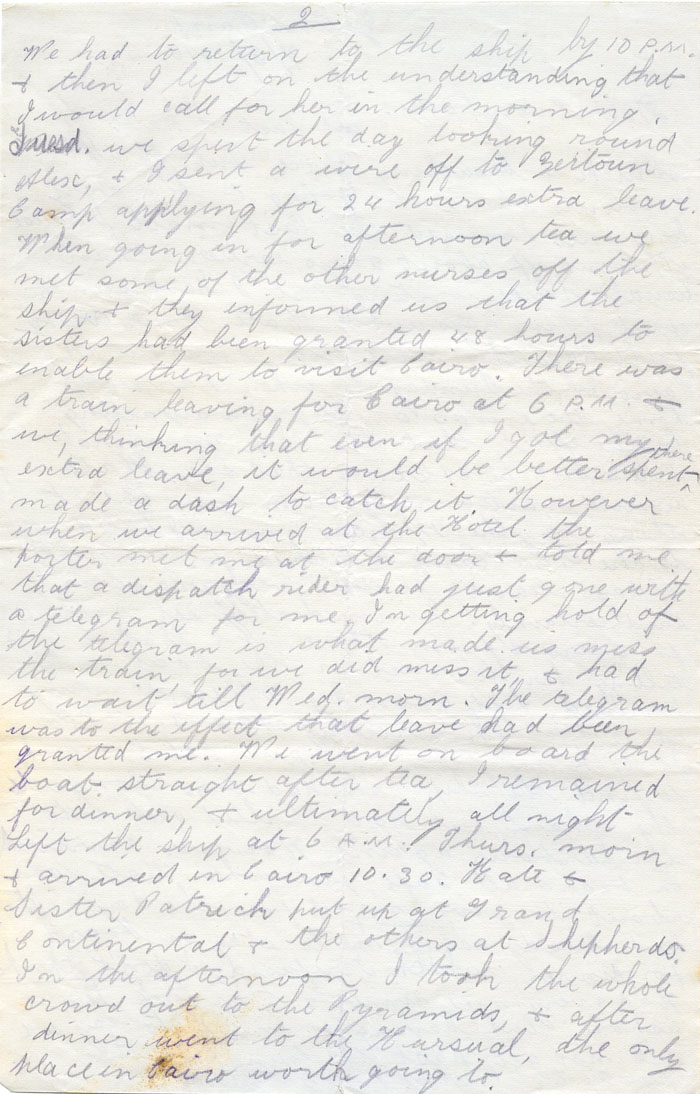 2
We had to return to the ship by 10 P.M.
& then I left on the understanding that
I would call for her in the morning.
Tuesd. we spent the day looking round
Alex, & I sent a wire off to Zeitoun
Camp applying for 24 hours extra leave.
When going in for afternoon tea we
met some of the other nurses off the
ship & they informed us that the
sisters had been granted 48 hours to
enable them to visit Cairo. There was
a train leaving for Cairo at 6 P.M. &
we, thinking that even if I got my
extra leave, it would be better spent there
made a dash to catch it. However
when we arrived at the Hotel the
porter met me at the door & told me
that a dispatch rider had just gone with
a telegram for me. In getting hold of
the telegram is what made us miss
the train, for we did miss it, & had
to wait till Wed. morn. The telegram
was to the effect that leave had been
granted me. We went on board the
boat straight after tea, I remained
for dinner, & ultimately all night
Left the ship at 6 A.M. Thurs. morn
& arrived in Cairo 10.30. Kate &
Sister Patrick put up at Grand
Continental & the others at Shepherds.
In the afternoon I took the whole
crowd out to the Pyramids, & after
dinner went to the Kursual, the only
place in Cairo worth going to.